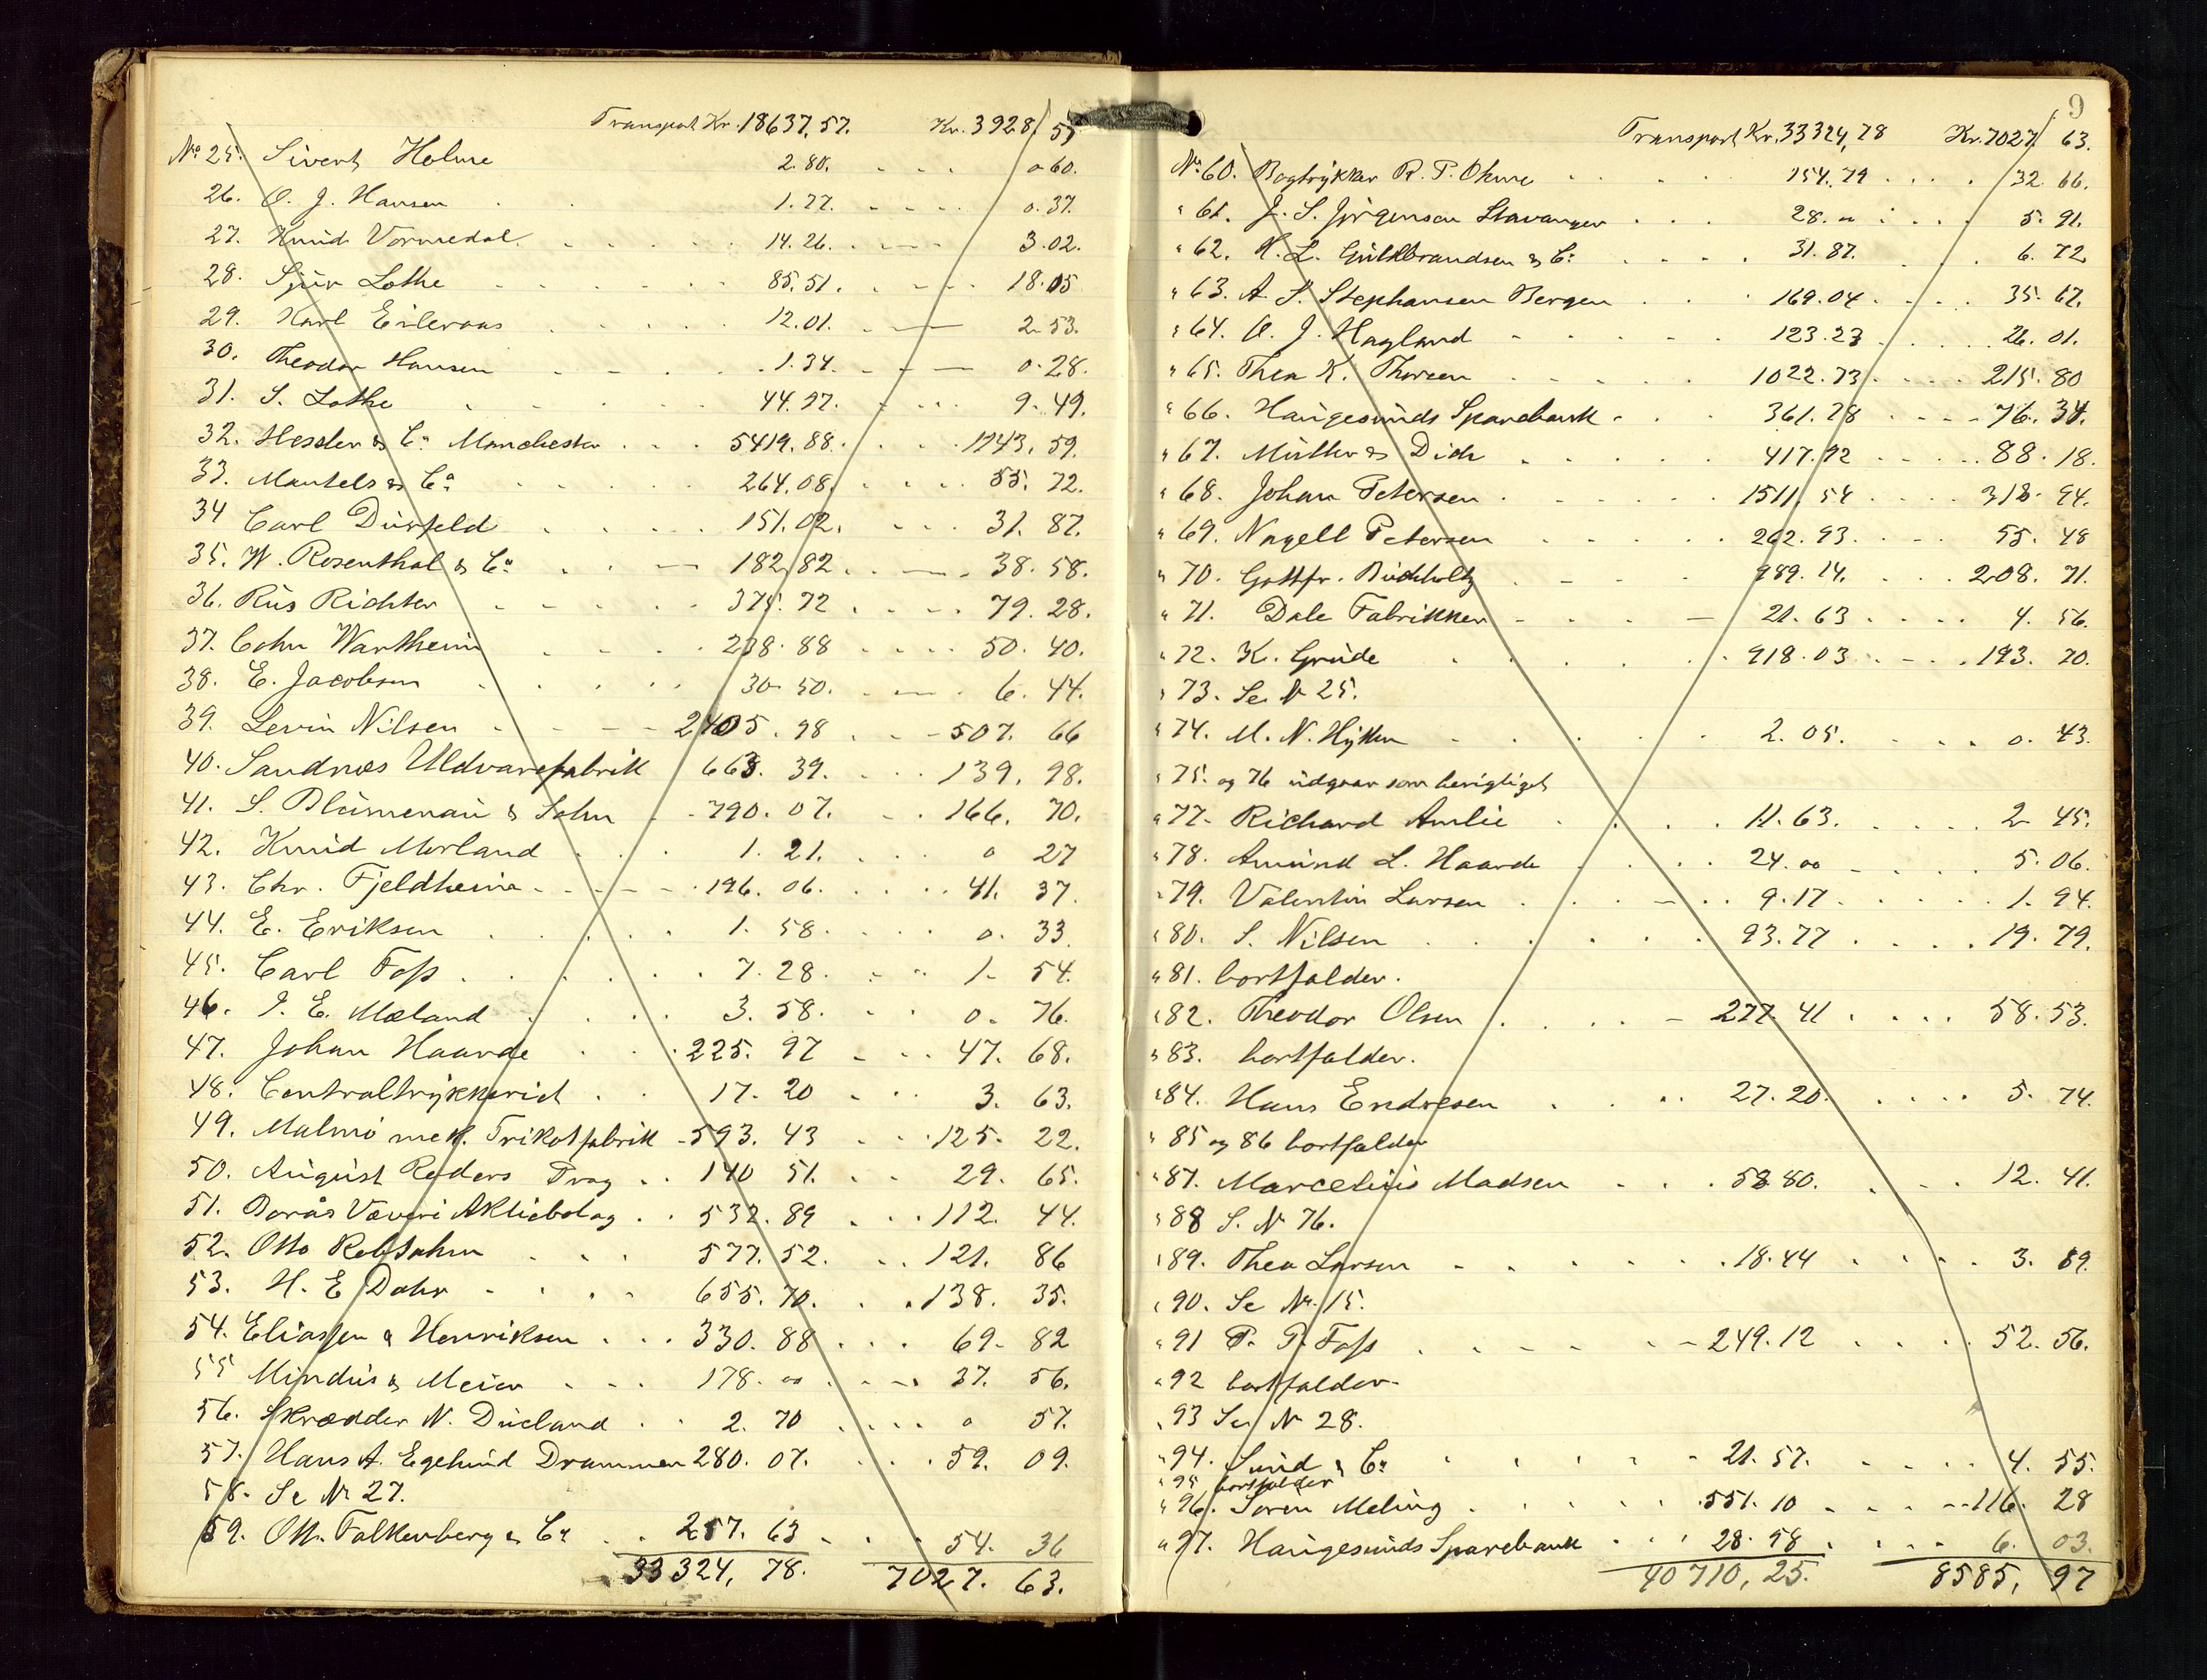 Transport Kr. 18637,57. Kr. 3928,57
No 25. Sivert Holme 2.80. 0.60.
26. O. J. Hansen 1.77. 0.37.
27. Knud Vormedal 14.26. 3.02.
28. Sjur Lothe 85.51. 18.05
29. Karl Eileraas 12.01. 2.53.
30. Theodor Hansen 1.34. 0.28.
31. S. Lothe 44.97. 9.49.
32. Hessler & Co Manchester 5419.88. 1143.59.
33. Mantels & Co 264.08. 55.72.
34 Carl Dürfeld 151.02. 31.87.
35. W. Rosenthal & Co 182.82. 38.58.
36. Rus Richter 375.72 79.28.
37. Cohn Wartheim 238.88 50.40.
38. E. Jacobsen 30.50. 6.44.
39. Levin Nilsen 2405.98 507.66
40. Sandnæs Uldvarefabrik 663.39. 139.98.
41. S. Blumenau & Sohn 790.07. 166.70.
42. Knud Morland 1.21. 0 27
43. Chr. Fjeldheim 196.06. 41.37.
44. E. Eriksen 1.58. 0.33.
45. Carl Foss 7.28. 1.54.
46. I. E. Mæland 3.58. 0.76.
47. Johan Haavde 225.97 47.68.
48. Centraltrykkeriet 17.20 3.63.
49. Malmö mek. Trikotfabrik 593.43 125.22.
50. August Roders Prag 140 51. 29.65.
51. Borås Väveri Aktiebolag 532.89 112.44.
52. Otto Robsahm 577.52. 121.86
53. H. E Dahr 655.70. 138.35.
54. Eliassen & Henriksen 330.88 69.82
55 Mindus & Meier 178.00 37.56.
56. Skrædder N. Dueland 2.70 0 57.
57. Hans A. Egelund Drammen 280.07. 59.09.
58. Se Nr 27.
59. Ott. Falkenberg & Co 257.63 54.36
33324,78. 7027.63.
9
Transport Kr. 33324,78 Kr. 7027,63.
No 60. Bogtrykker R. P. Ohme 154.79 32.66.
" 61. J. S. Jørgensen Stavanger 28." 5.91.
" 62. H. L. Gulbrandsen & Co 31.87. 6.72
" 63. A. S. Stephansen Bergen 169.04 35.67.
" 64. O. J. Hagland 123.23 26.01.
" 65. Thea K. Thorsen 1022.73 215.80
" 66. Haugesunds Sparebank 361.78 76.34.
" 67. Müller & Dich 417.92 88.18.
" 68. Johan Petersen 1511.54 318.94.
" 69. Nagell Petersen 262.93. 55.48
" 70. Gottfr. Buchholtz 989.14. 208.71.
" 71. Dale Fabrikker 21.63 4.56.
" 72. K. Grude 918.03 193.70.
" 73. Se Nr 25.
" 74. M. N. Hytten 2.05. 0.43.
" 75. og 76 udgaar som berigtiget
" 77. Richard Amlie 11.63. 2 45.
" 78. Amund L. Haavde 24.00 5.06.
" 79. Valentin Larsen 9.17 1.94.
" 80. S. Nilsen 93.77 19.79.
" 81. bortfalder.
" 82. Theodor Olsen 277.41 58.53.
" 83. bortfalder.
" 84. Hans Endresen 27.20. 5.74.
" 85 og 86 bortfalder
" 87. Marcelius Madsen 58.80. 12.41.
" 88 S. Nr 76.
" 89. Thea Larsen 18.44 3.89.
" 90. Se Nr. 15.
" 91 P. P. Foss 249.12 52.56.
" 92 bortfalder.
" 93 Se Nr 28.
" 94. Sund & Co 21.57. 4.55.
" 95 bortfalder
" 96. Soren Meling 551.10 116.28
" 97. Haugesunds Sparebank 28.58 6.03.
40710,25. 8585,97